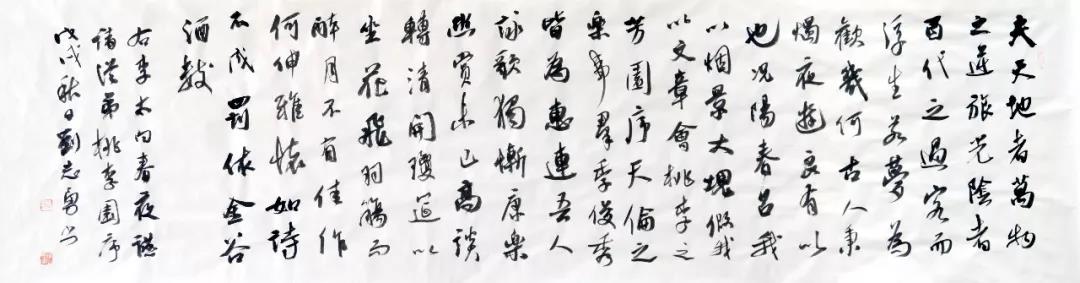 夫天地者萬物
之逆旅光陰者
百代之過客而
浮生若夢為
歡幾何古人秉
燭夜遊良有以
也況陽春召我
以烟景大塊假我
以文章會桃李之
芳園序天倫之
樂事羣季俊秀
皆為惠連吾人
詠歌獨慚康樂
幽賞未已高談
轉清開瓊筵以
坐花飛羽觴而
醉月不有佳作
何伸雅懷如詩
不成罰依金谷
酒數
右李太白春夜讌
諸從弟桃李園序
戊戌秋日劉志勇书